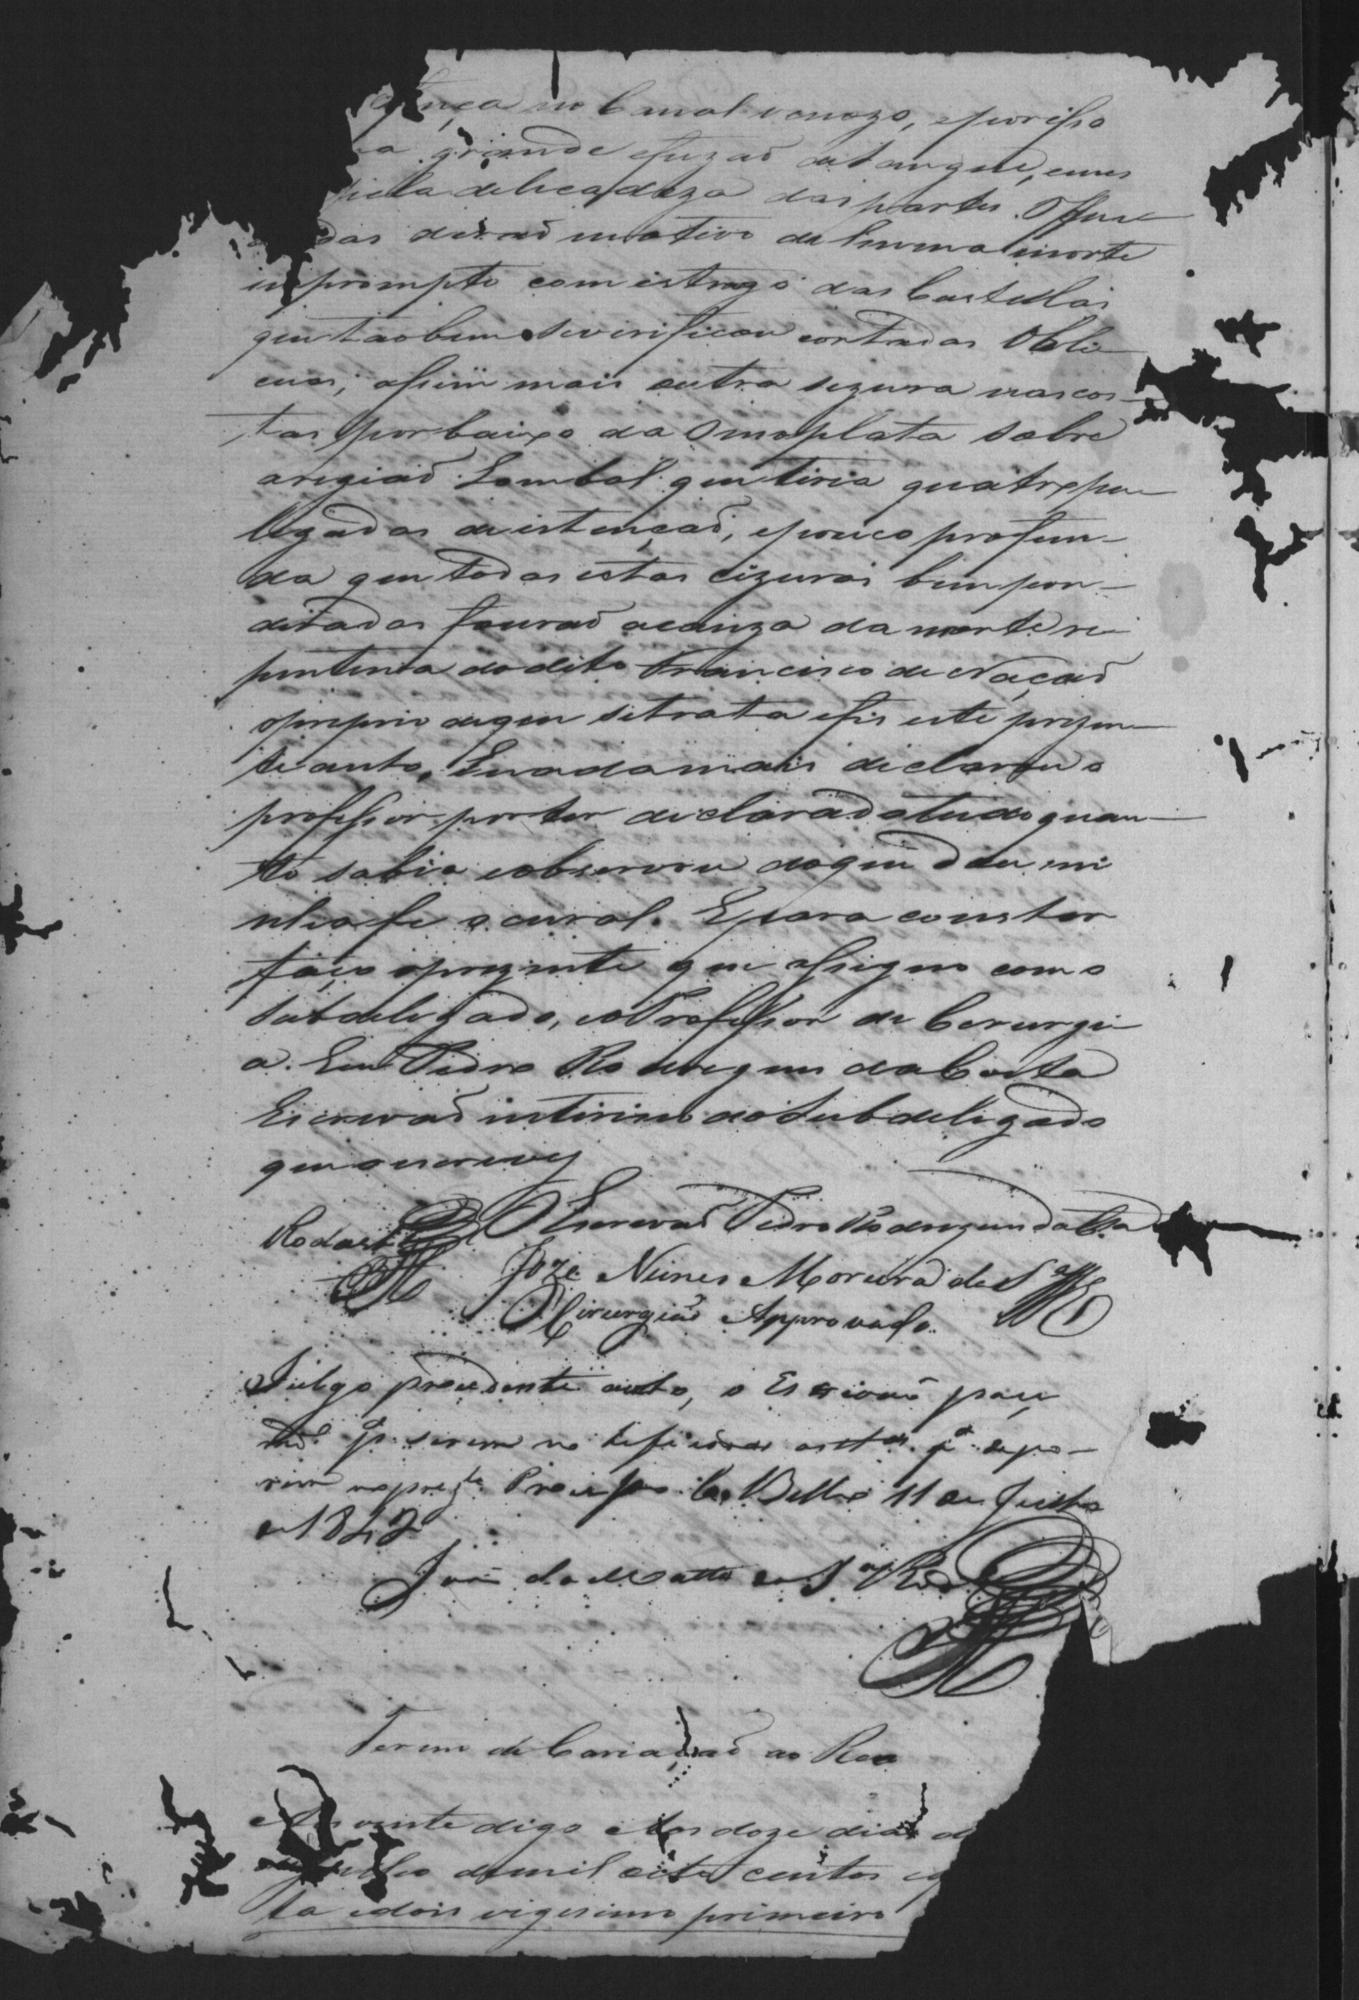 no Canal venozo, eporisso
grande efuzaõ de sangue, e mes
pela delicadeza das partes Offen
didas deraõ motivo de huma morte
inprompto com estrago das Costellas
que taõbem severificou cortadas Obli
cuas; assim mais outra sizura nas cos-
tas por baixo da Omoplata sobre
aregiaõ Lombal que tiria quatro pu
legadas de istençaõ, epouco profun-
da que todas estas cizuras bem pon-
deradas foraõ acauza da morte re
pentina do dito Francisco de Naçaõ
oproprio dequem setrata efis este prezen-
te auto, Enada mais declarou o
professor por ter declarado tudo quan-
to sabia eobservou do que deu mi
nha fe o cural. Epara constar
faço oprezente que assigno com o
Subdelegado, eo Professor de Cerurgi-
a. Eu Pedro Rodrigues da Costa
Escrivaõ interino do Subdelegado
que o escrevy
O Escrivaõ Pedro Rodrigues da Cta
Joze Nunes Moreira de Sza
Cirurgiaõ Approvado.
Julgo procedente auto, o Escrivaõ pace
mdo pa serem noteficadas as ttas pa depo-
rem no prezte Processo C. Bello 11 de Julho
de 1842
Joaõ da Matta de Sza
Termo de Cariaçaõ ao Reo
Aos vente digo Aos doze dias d
Julho demil oito centos e
ta edois vigesimo primeiro